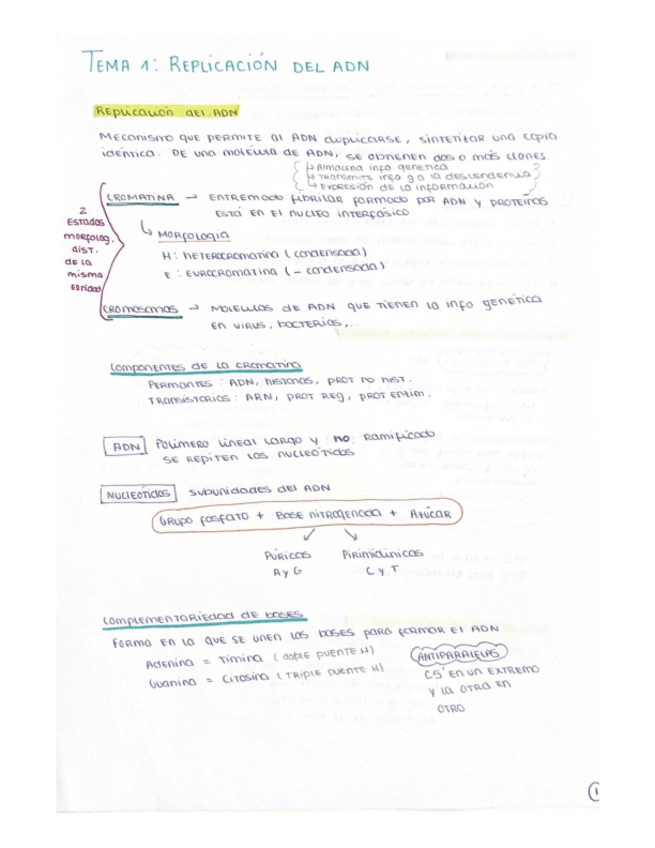 TEMA 1: REPLICACIÓN DEL ADN
Replicación del ADN
Mecanismo que permite al ADN duplicarse, sintetizar una copia
idéntica. De una molécula de ADN, se obtienen dos o más clones.
Almacena info genética
Transmite info g a la descendencia
Expresión de la información
CROMATINA → Entremado fibrilar formado por ADN y proteínas
está en el nucleo interfásico
2 Estados morfolog. dist. de la misma entidad
↳ Morfología
H: Heterocromatina (condensada)
E: Eurocromatina (- condensada)
CROMOSOMAS → Moléculas de ADN que tienen la info genética
en virus, bacterias,...
Componentes de la cromatina
Permantes: ADN, histonas, prot no hist.
Transistorios: ARN, prot reg, prot enzim.
ADN Polímero lineal largo y no ramificado
se repiten los nucleótidos
NUCLEOTIDOS subunidades del ADN
Grupo fosfato + Base nitrogenada + Azúcar
Púricas Pirimidínicas
A y G C y T
Complementariedad de bases
Forma en la que se unen las bases para formar el ADN
Adenina = Timina (doble puente H)
Guanina = Citosina (triple puente H)
ANTIPARALELAS
C5' en un extremo
y la otra en
otro
1